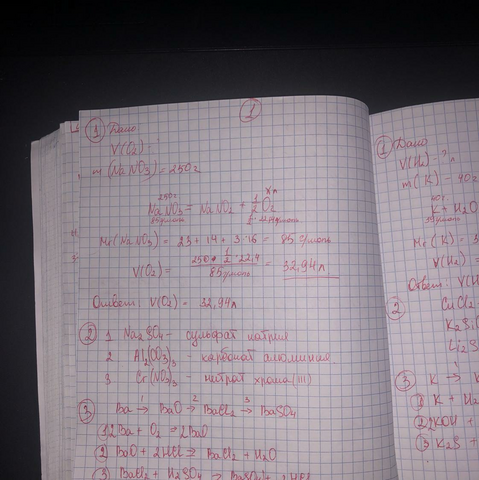 1
3 Дано
V(O₂)-?
m(NaNO₃)=250г
250г Xл
NaNO₃ = NaNO₂ + 1/2 O₂
85г/моль 1/2 · 22,4л/моль
Mr(NaNO₃) = 23 + 14 + 3·16 = 85 г/моль
V(O₂) = 250 · 1/2 · 22,4 / 85г/моль = 32,94л
Ответ: V(O₂) = 32,94л
2 1 Na₂SO₄ - сульфат натрия
2 Al₂(CO₃)₃ - карбонат алюминия
3 Cr(NO₃)₃ - нитрат хрома(III)
3 Ba →1 BaO →2 BaCl₂ →3 BaSO₄
1) 2Ba + O₂ = 2BaO
2) BaO + 2HCl = BaCl₂ + H₂O
3) BaCl₂ + H₂SO₄ → BaSO₄ + 2HCl
1 Дано
V(H₂)-?
m(K) - 40г
40г
K + H₂O
Mr(K) =
V(H₂) =
Ответ: V(H
2 CuCl₂
K₂S
Li₂S
3 K → K
1 K + H₂
2 2KOH +
3 K₂S +